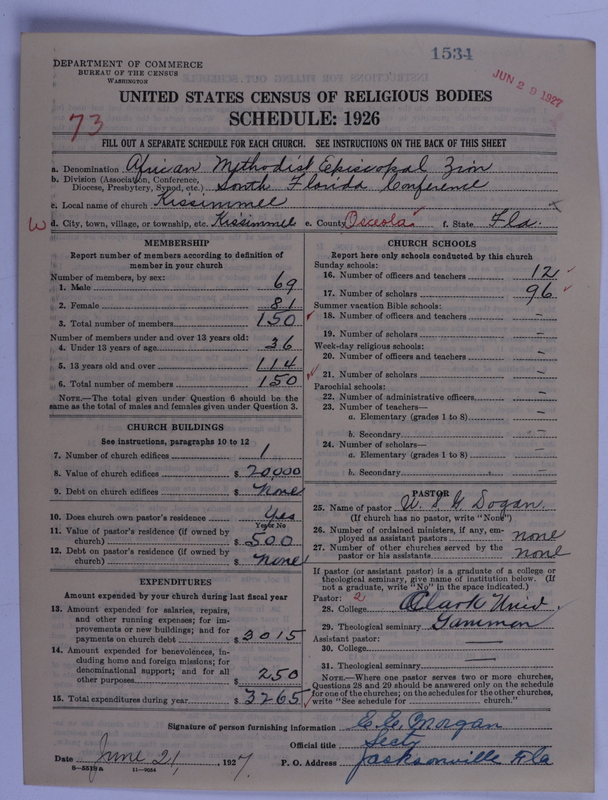 1534
DEPARTMENT OF COMMERCE
BUREAU OF THE CENSUS
WASHINGTON
JUN 29 1927
UNITED STATES CENSUS OF RELIGIOUS BODIES
SCHEDULE: 1926
73
FILL OUT A SEPARATE SCHEDULE FOR EACH CHURCH. SEE INSTRUCTIONS ON THE BACK OF THIS SHEET
a. Denomination African Methodist Episcopal Zion
b. Division (Association, Conference,
Diocese, Presbytery, Synod, etc.) South Florida Conference
c. Local name of church Kissimmee
d. City, town, village, or township, etc. Kissimmee e. County Osceola f. State Fla.
MEMBERSHIP
Report number of members according to definition of
member in your church
Number of members, by sex:
1. Male 69
2. Female 81
3. Total number of members 150
Number of members under and over 13 years old:
4. Under 13 years of age 36
5. 13 years old and over 114
6. Total number of members 150
NOTE.—The total given under Question 6 should be the
same as the total of males and females given under Question 3.
CHURCH BUILDINGS
See instructions, paragraphs 10 to 12
7. Number of church edifices 1
8. Value of church edifices $ 20,000
9. Debt on church edifices $ None
10. Does church own pastor's residence Yes
Yes or No
11. Value of pastor's residence (if owned by
church) $ 500
12. Debt on pastor's residence (if owned by
church) $ None
EXPENDITURES
Amount expended by your church during last fiscal year
13. Amount expended for salaries, repairs,
and other running expenses; for im-
provements or new buildings; and for
payments on church debt $ 3015
14. Amount expended for benevolences, in-
cluding home and foreign missions; for
denominational support; and for all
other purposes $ 250
15. Total expenditures during year $ 3265
CHURCH SCHOOLS
Report here only schools conducted by this church
Sunday schools:
16. Number of officers and teachers 12
17. Number of scholars 96
Summer vacation Bible schools:
18. Number of officers and teachers –
19. Number of scholars –
Week-day religious schools:
20. Number of officers and teachers –
21. Number of scholars –
Parochial schools:
22. Number of administrative officers –
23. Number of teachers—
a. Elementary (grades 1 to 8) –
b. Secondary –
24. Number of scholars—
a. Elementary (grades 1 to 8) –
b. Secondary –
PASTOR
25. Name of pastor W. S. G. Dogan
(If church has no pastor, write "None")
26. Number of ordained ministers, if any, em-
ployed as assistant pastors none
27. Number of other churches served by the
pastor or his assistants none
If pastor (or assistant pastor) is a graduate of a college or
theological seminary, give name of institution below. (If
not a graduate, write "No" in the space indicated.)
Pastor: 2
28. College Clark Univ
29. Theological seminary Gammon
Assistant pastor:
30. College —
31. Theological seminary —
NOTE.—Where one pastor serves two or more churches,
Questions 28 and 29 should be answered only on the schedule
for one of the churches; on the schedules for the other churches,
write "See schedule for church."
Signature of person furnishing information E. E. Morgan
Official title Secty
Date June 21, 1927. P. O. Address Jacksonville Fla
8—5538a 11—9054